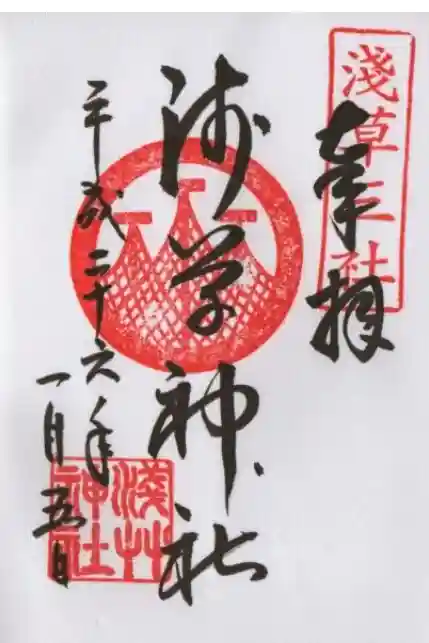 淺草三社
奉拝
浅草神社
平成二十六年
一月五日
淺艸
神社